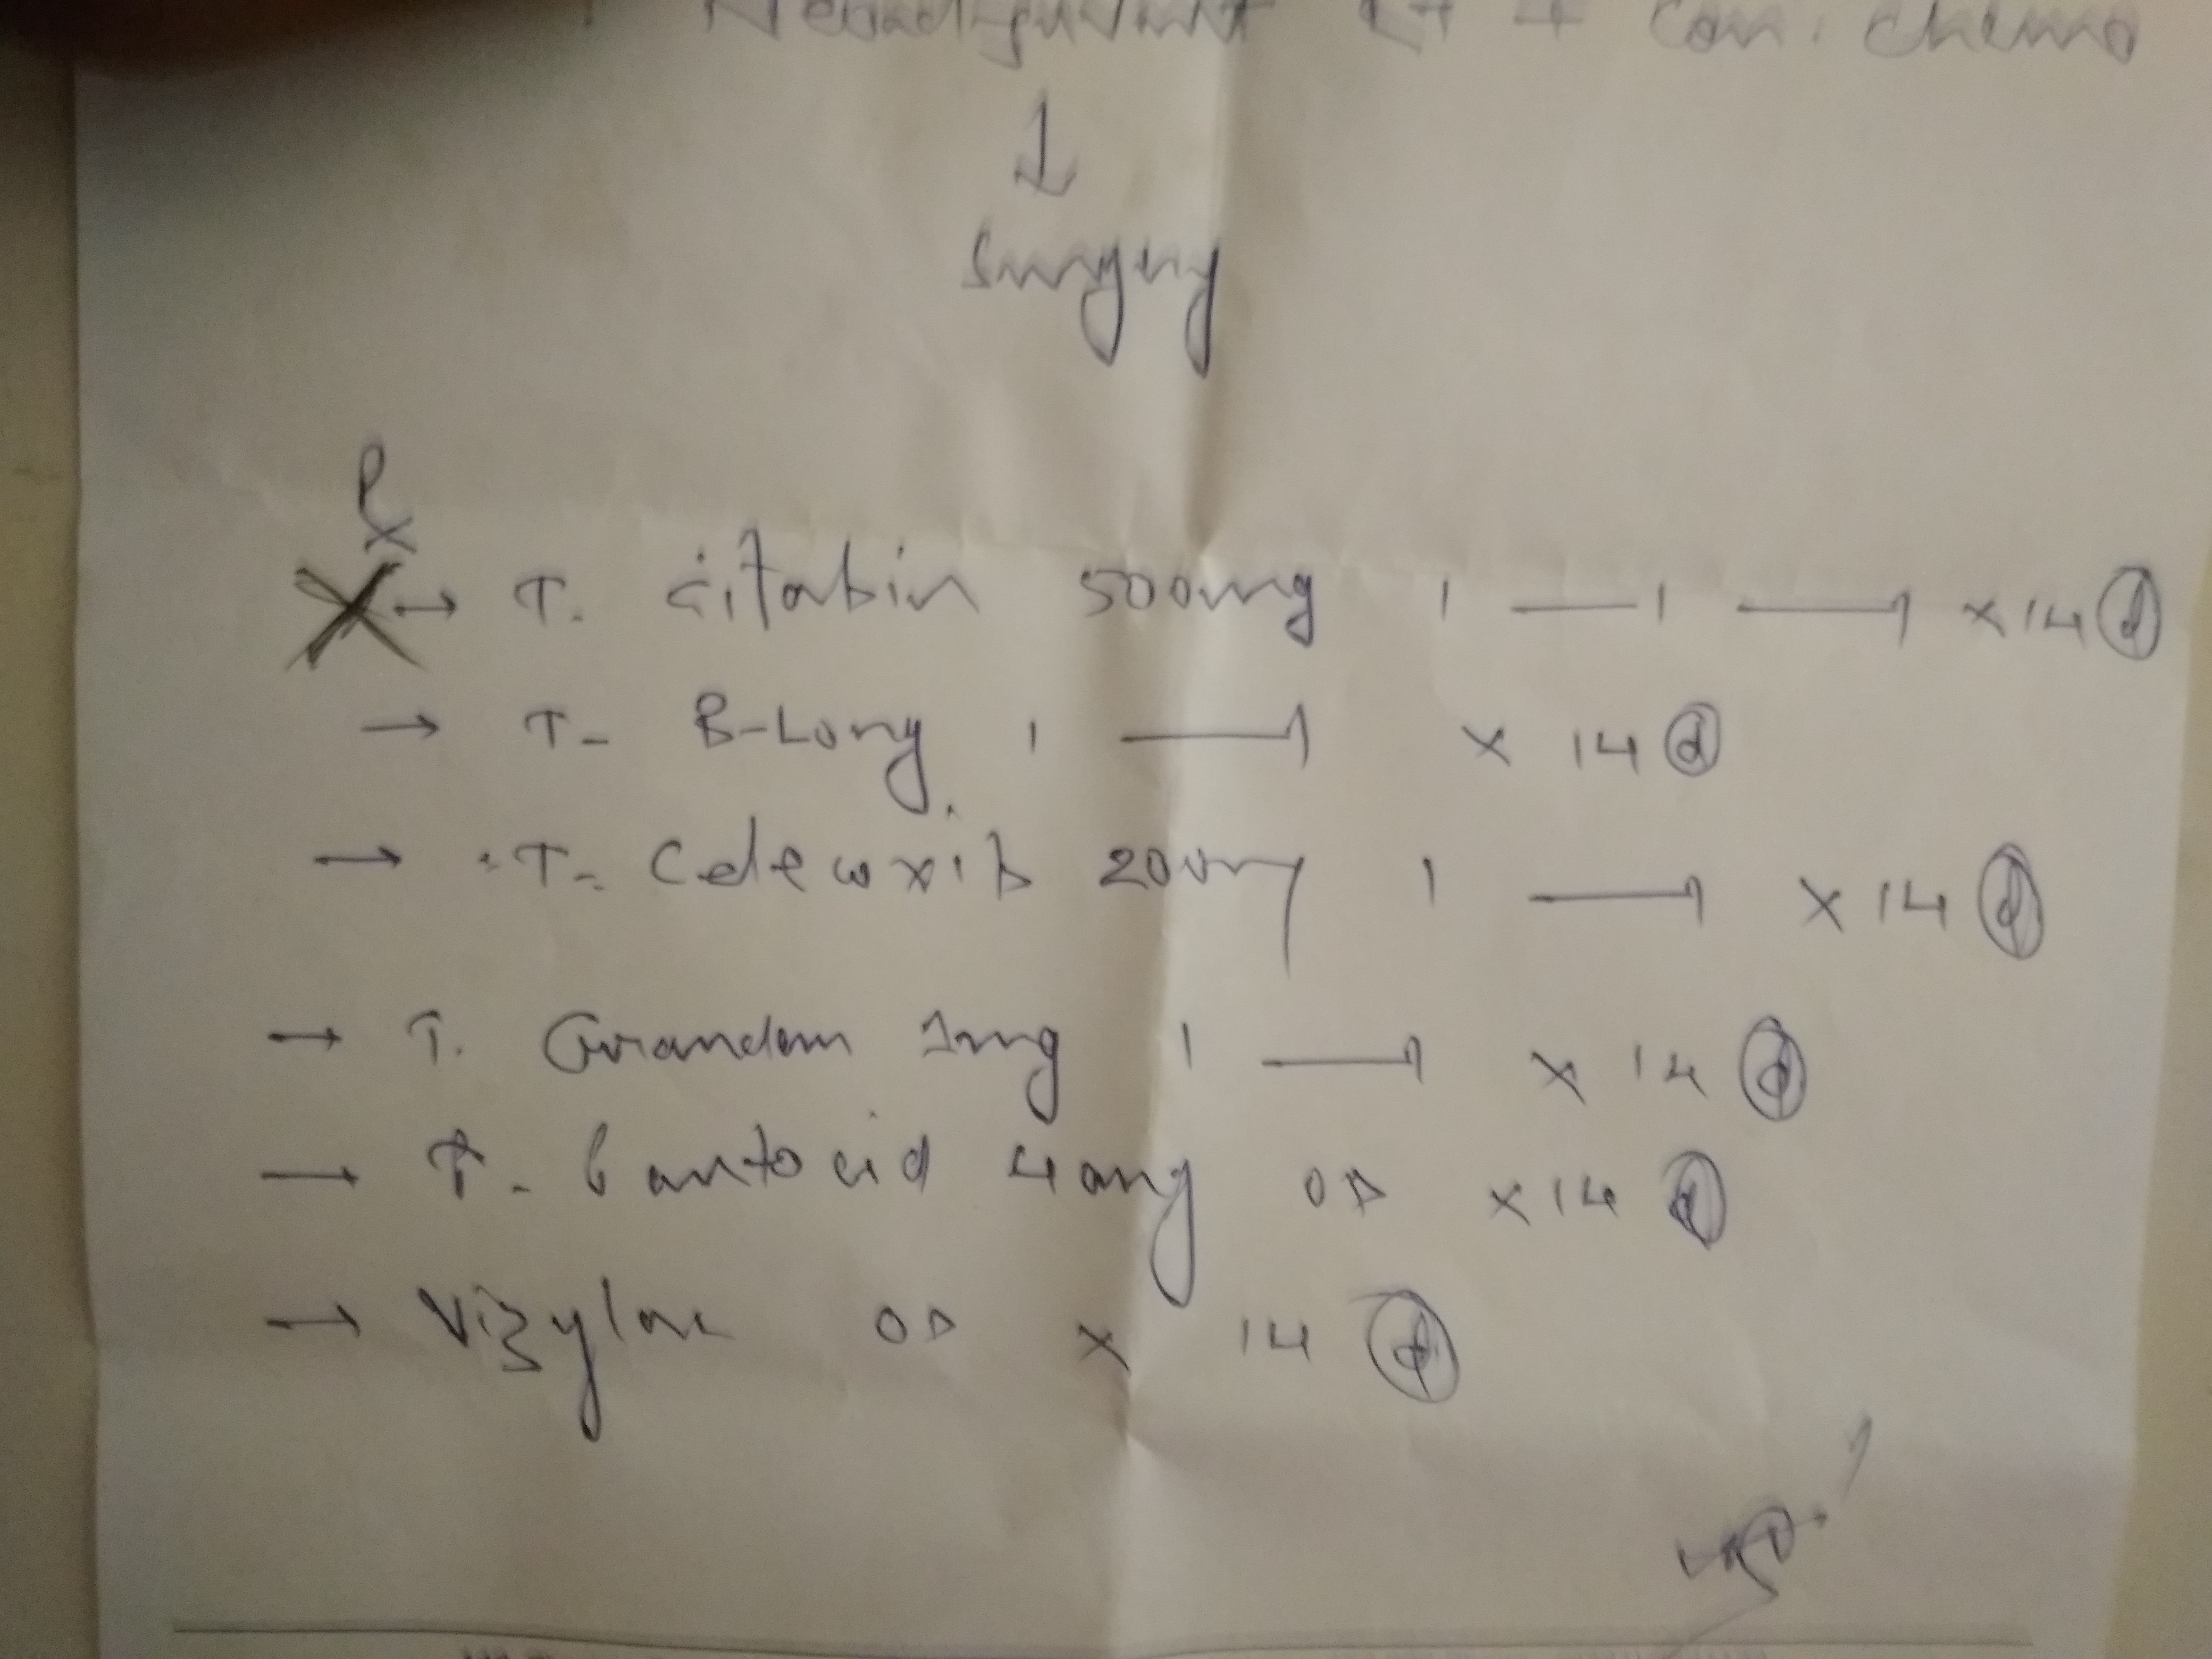 Neoadjuvant RT + Con. chemo
↓
Surgery
Rx
X → T. citabin 500mg 1 — 1 — 1 x 14 d
→ T- B-Long 1 — 1 x 14 d
→ T- Celecoxib 200mg 1 — 1 x 14 d
→ T. Grandem 1mg 1 — 1 x 14 d
→ T- Pantocid 40mg OD x 14 d
→ Vizylac OD x 14 d